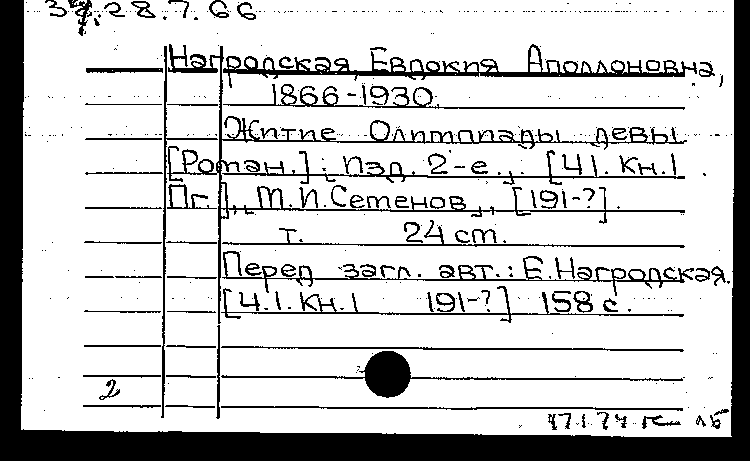 34.28.7.66
Нагродская, Евдокия Аполлоновна,
1866-1930.
Житие Олимпиады девы
[Роман.]; Изд. 2-е., . [Ч1. Кн.1 .
Пг.],, М.И.Семенов,, [191-?].
т. 24 cm.
Перед загл. авт.: Е.Нагродская.
[Ч.1. Кн.1 191-?] 158 с.
2